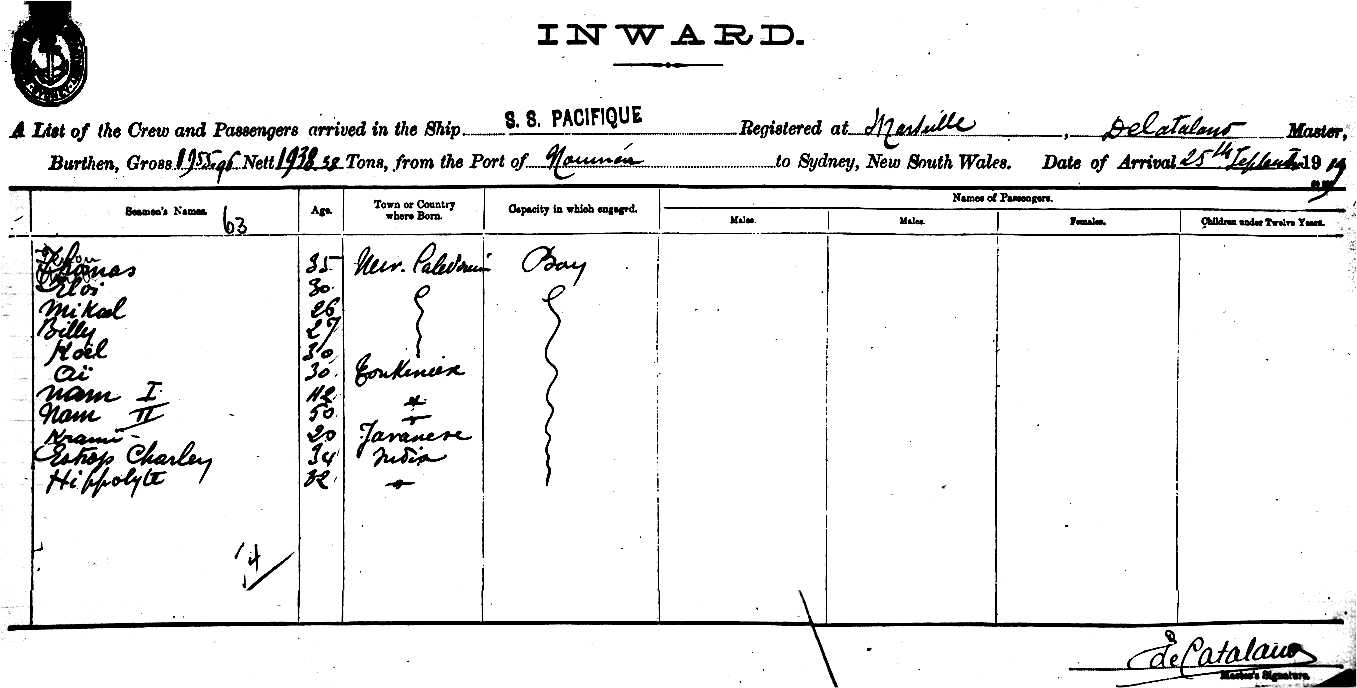 INWARD.
A List of the Crew and Passengers arrived in the Ship S. S. PACIFIQUE Registered at Marseille, De Catalano Master,
Burthen, Gross 1955.96 Nett 1938.32 Tons, from the Port of Nouméa to Sydney, New South Wales. Date of Arrival 25th September 1919
Seamen's Names. 63 Age. Town or Country where Born. Capacity in which engaged. Names of Passengers.
Males. Males. Females. Children under Twelve Years.
Thomas 35 New. Caledonie Boy
Eloi 30
Mikael 26
Billy 27
Koël 30
Aï 30 Tonkinese
Nam I 42 "
Nam II 50 "
Krami 20 Javanese
Charley 34 India
Hippolyte 32 "
14
de Catalano
Master's Signature.